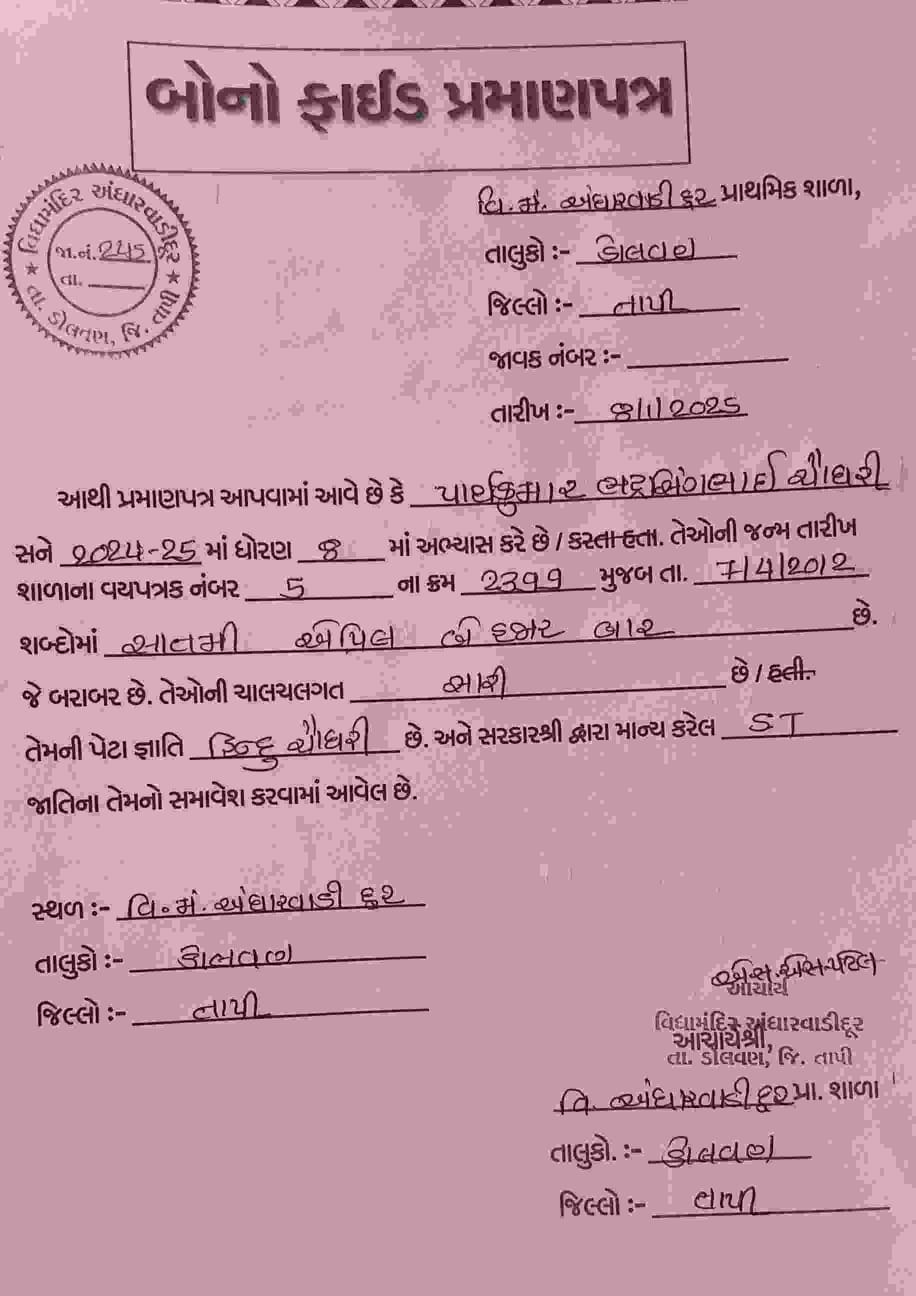 બોનો ફાઈડ પ્રમાણપત્ર
વિ.મં. અંધારવાડી દુર પ્રાથમિક શાળા,
તાલુકો :- ડોલવણ
જિલ્લો :- તાપી
જાવક નંબર :-
તારીખ :- 8/1/2025
વિદ્યામંદિર અંધારવાડીદૂર
જા.નં. 245
તા.
તા. ડોલવણ, જિ. તાપી
આથી પ્રમાણપત્ર આપવામાં આવે છે કે પાર્થકુમાર ભદ્રસિંગભાઈ ચૌધરી
સને 2024-25 માં ધોરણ 8 માં અભ્યાસ કરે છે / કરતા હતા. તેઓની જન્મ તારીખ
શાળાના વયપત્રક નંબર 5 ના ક્રમ 2399 મુજબ તા. 7/4/2012
શબ્દોમાં સાતમી એપ્રિલ બે હજાર બાર છે.
જે બરાબર છે. તેઓની ચાલચલગત સારી છે / હતી.
તેમની પેટા જ્ઞાતિ હિન્દુ ચૌધરી છે. અને સરકારશ્રી દ્વારા માન્ય કરેલ ST
જાતિના તેમનો સમાવેશ કરવામાં આવેલ છે.
સ્થળ :- વિ.મં. અંધારવાડી દુર
તાલુકો :- ડોલવણ
જિલ્લો :- તાપી
એસ.એસ.પટેલ
આચાર્ય
વિદ્યામંદિર અંધારવાડીદૂર
આચાર્યશ્રી,
તા. ડોલવણ, જિ. તાપી
વિ. અંધારવાડી દુર પ્રા. શાળા
તાલુકો. :- ડોલવણ
જિલ્લો :- તાપી